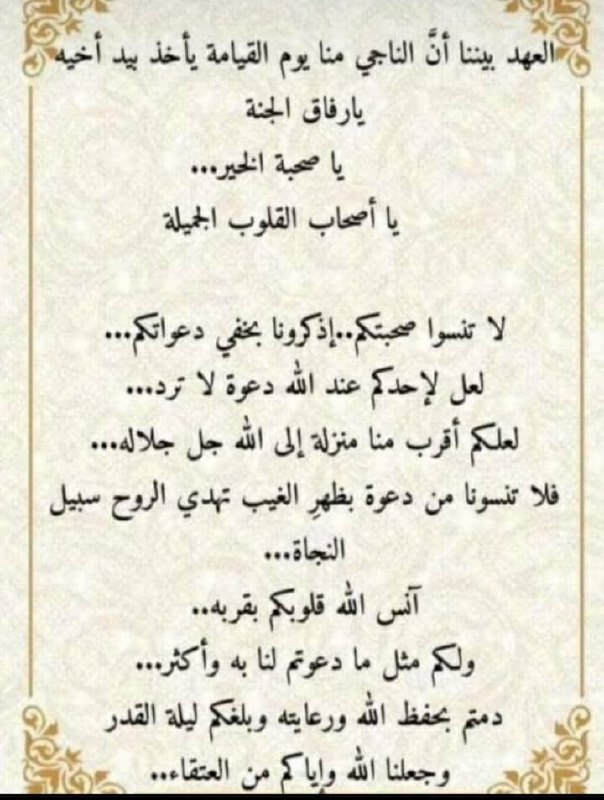 العهد بيننا أنَّ الناجي منا يوم القيامة يأخذ بيد أخيه
يارفاق الجنة
يا صحبة الخير...
يا أصحاب القلوب الجميلة
لا تنسوا صحبتكم..إذكرونا بخفي دعواتكم...
لعل لإحدكم عند الله دعوة لا ترد...
لعلكم أقرب منا منزلة إلى الله جل جلاله...
فلا تنسونا من دعوة بظهرِ الغيب تهدي الروح سبيل
النجاة...
آنس الله قلوبكم بقربه..
ولكم مثل ما دعوتم لنا به وأكثر...
دمتم بحفظ الله ورعايته وبلغكم ليلة القدر
وجعلنا الله وإياكم من العتقاء..